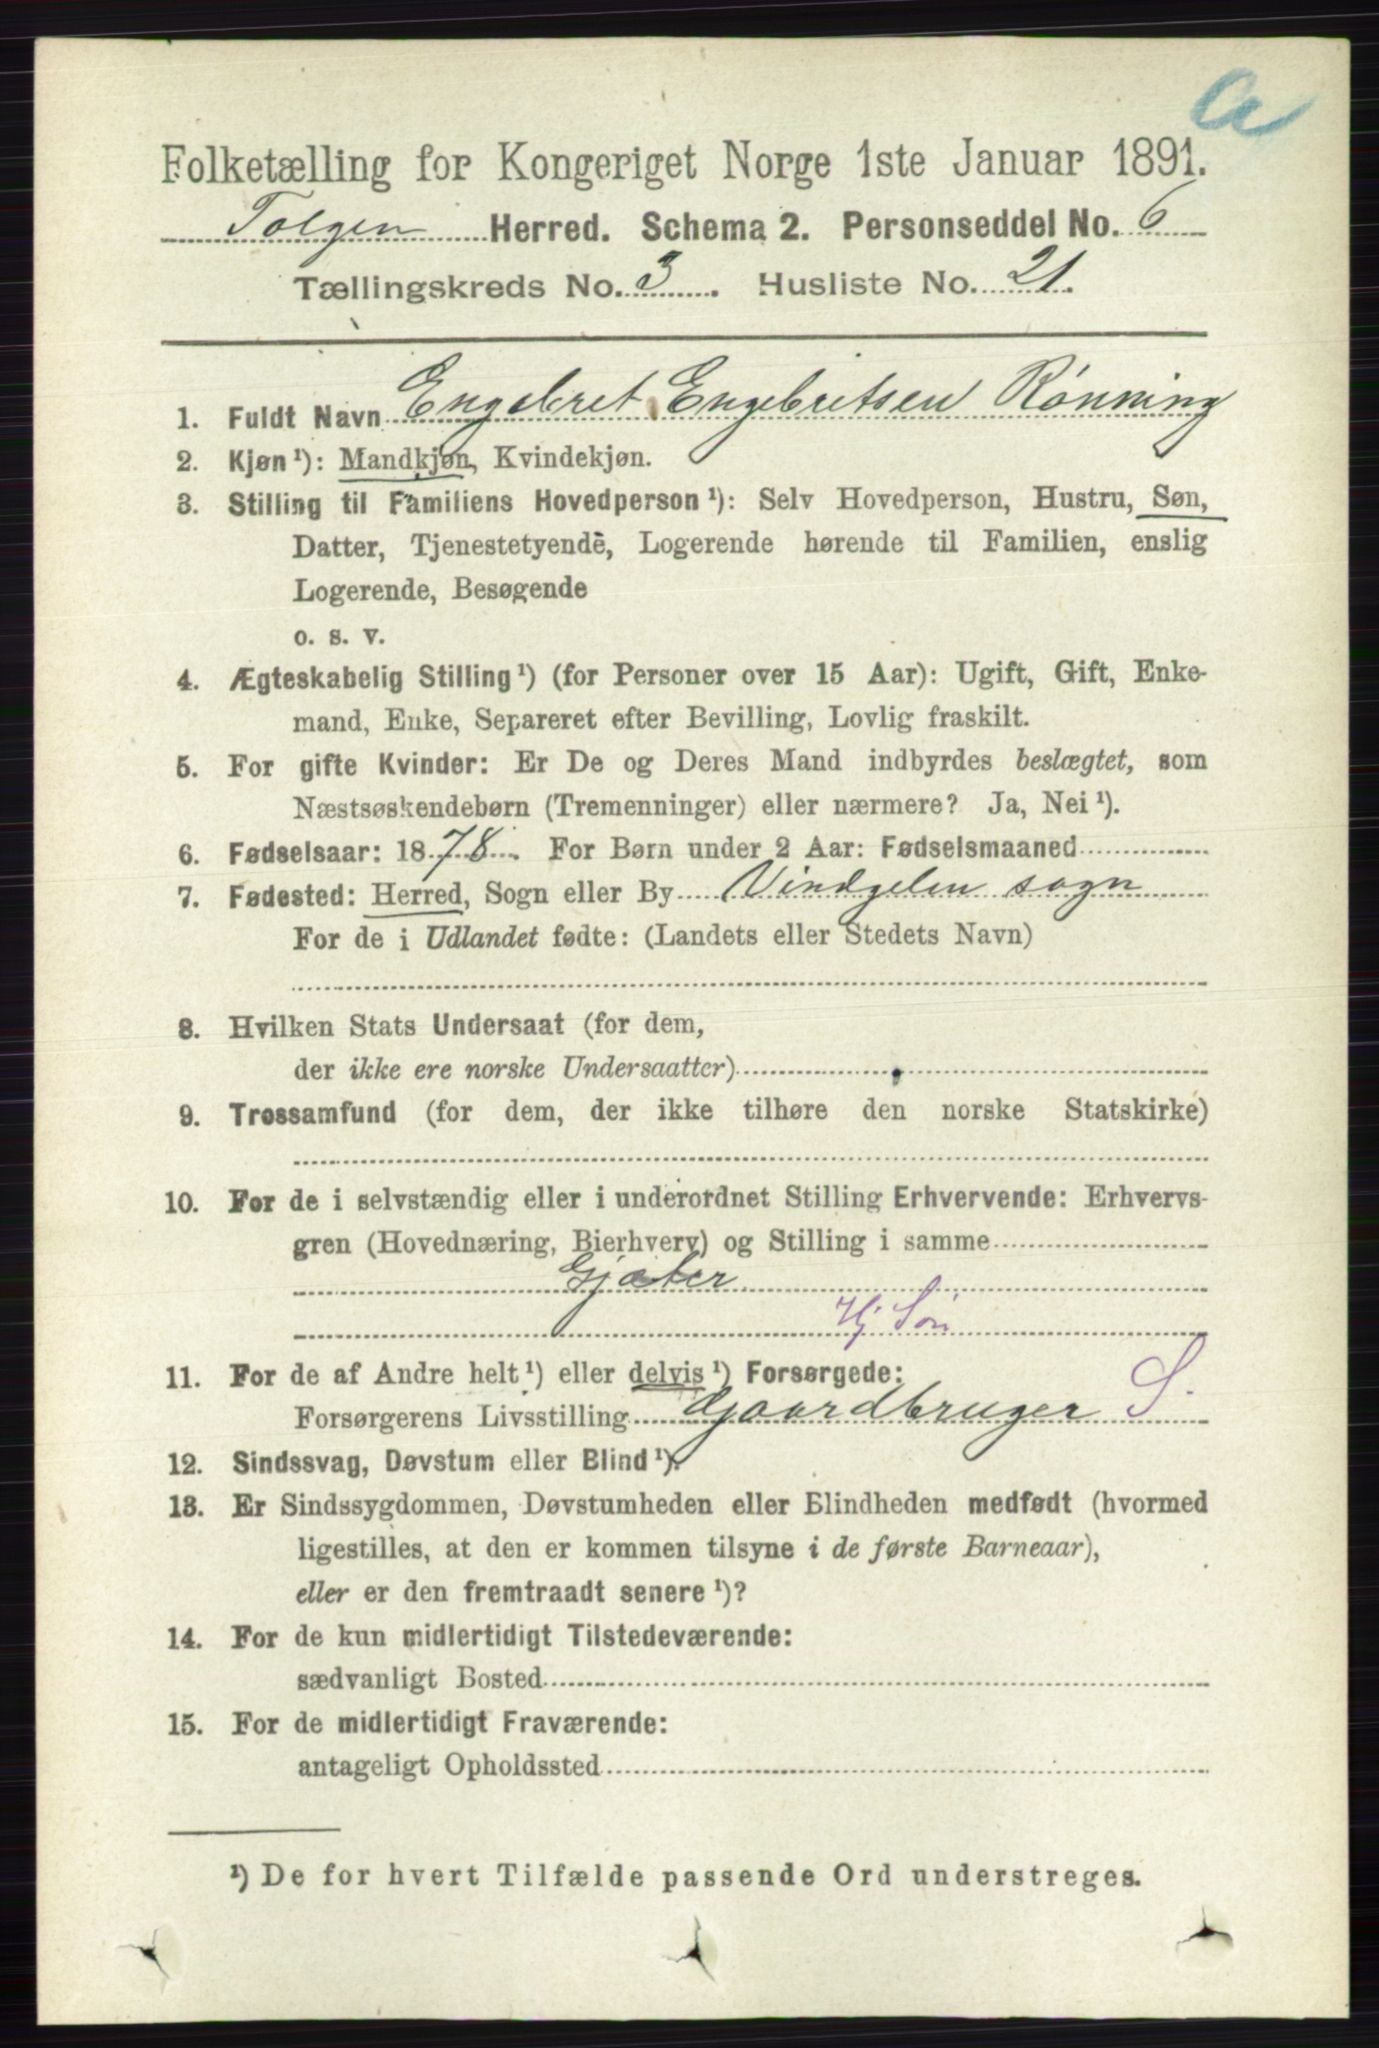 a
Folketælling for Kongeriget Norge 1ste Januar 1891.
Tolgen Herred. Schema 2. Personseddel No. 6
Tællingskreds No. 3. Husliste No. 21.
1. Fuldt Navn Engebret Engebritsen Rønning
2. Kjøn¹): Mandkjøn, Kvindekjøn.
3. Stilling til Familiens Hovedperson¹): Selv Hovedperson, Hustru, Søn,
Datter, Tjenestetyende, Logerende hørende til Familien, enslig
Logerende, Besøgende
o. s. v.
4. Ægteskabelig Stilling¹) (for Personer over 15 Aar): Ugift, Gift, Enke-
mand, Enke, Separeret efter Bevilling, Lovlig fraskilt.
5. For gifte Kvinder: Er De og Deres Mand indbyrdes beslægtet, som
Næstsøskendebørn (Tremenninger) eller nærmere? Ja, Nei¹).
6. Fødselsaar: 1878. For Børn under 2 Aar: Fødselsmaaned
7. Fødested: Herred, Sogn eller By Vindgelen sogn
For de i Udlandet fødte: (Landets eller Stedets Navn)
8. Hvilken Stats Undersaat (for dem,
der ikke ere norske Undersaatter)
9. Trossamfund (for dem, der ikke tilhøre den norske Statskirke)
10. For de i selvstændig eller i underordnet Stilling Erhvervende: Erhvervs-
gren (Hovednæring, Bierhverv) og Stilling i samme
Gjæter
Hj Søn
11. For de af Andre helt¹) eller delvis¹) Forsørgede:
Forsørgerens Livsstilling Gjaardbruger S.
12. Sindssvag, Døvstum eller Blind¹).
13. Er Sindssygdommen, Døvstumheden eller Blindheden medfødt (hvormed
ligestilles, at den er kommen tilsyne i de første Barneaar),
eller er den fremtraadt senere¹)?
14. For de kun midlertidigt Tilstedeværende:
sædvanligt Bosted
15. For de midlertidigt Fraværende:
antageligt Opholdssted
¹) De for hvert Tilfælde passende Ord understreges.